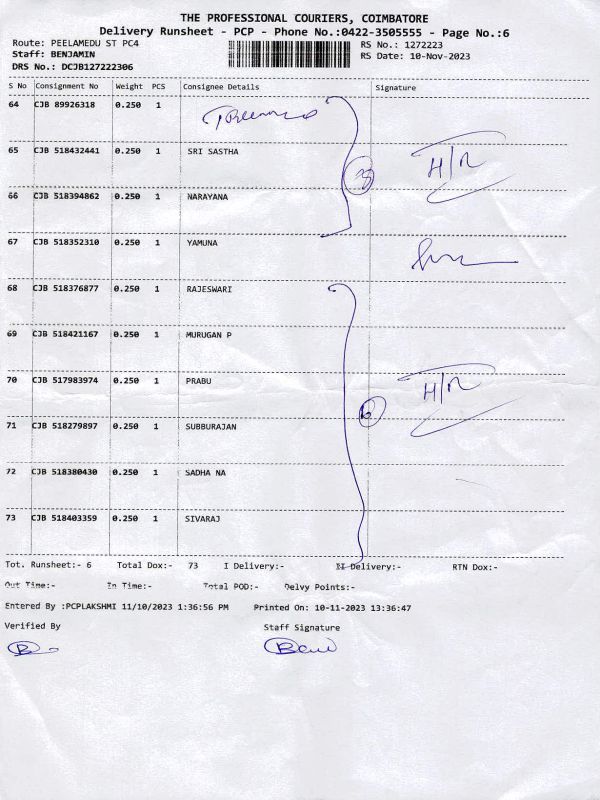 THE PROFESSIONAL COURIERS, COIMBATORE
Delivery Runsheet - PCP - Phone No.:0422-3505555 - Page No.:6
Route: PEELAMEDU ST PC4 RS No.: 1272223
Staff: BENJAMIN RS Date: 10-Nov-2023
DRS No.: DCJB127222306
S No Consignment No Weight PCS Consignee Details Signature
64 CJB 89926318 0.250 1
65 CJB 518432441 0.250 1 SRI SASTHA H/R
66 CJB 518394862 0.250 1 NARAYANA
67 CJB 518352310 0.250 1 YAMUNA
68 CJB 518376877 0.250 1 RAJESWARI
69 CJB 518421167 0.250 1 MURUGAN P
70 CJB 517983974 0.250 1 PRABU H/R
71 CJB 518279897 0.250 1 SUBBURAJAN
72 CJB 518380430 0.250 1 SADHA NA
73 CJB 518403359 0.250 1 SIVARAJ
Tot. Runsheet:- 6 Total Dox:- 73 I Delivery:- II Delivery:- RTN Dox:-
Out Time:- In Time:- Total POD:- Delvy Points:-
Entered By :PCPLAKSHMI 11/10/2023 1:36:56 PM Printed On: 10-11-2023 13:36:47
Verified By Staff Signature